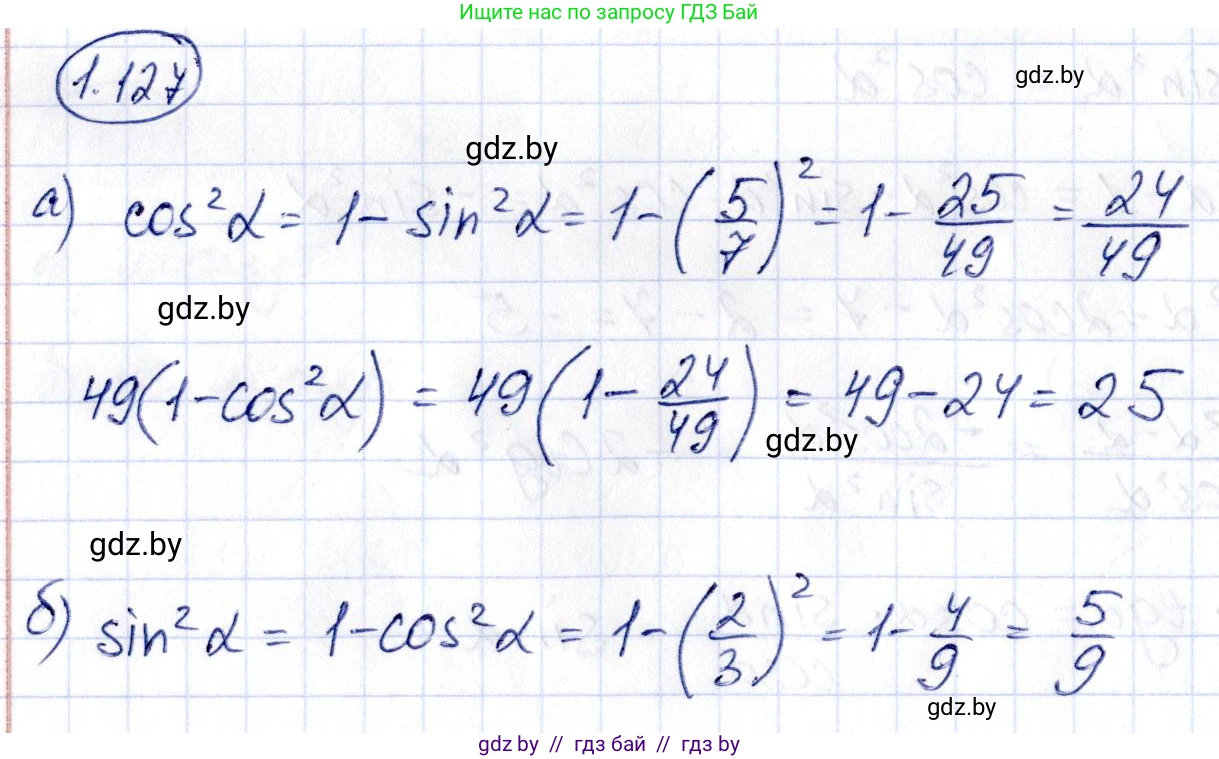 Ищите нас по запросу ГДЗ Бай
1.127
gdz.by
gdz.by
а) cos²α = 1 - sin²α = 1 - (5/7)² = 1 - 25/49 = 24/49
gdz.by
49(1 - cos²α) = 49(1 - 24/49) = 49 - 24 = 25
gdz.by
gdz.by
б) sin²α = 1 - cos²α = 1 - (2/3)² = 1 - 4/9 = 5/9
gdz.by
gdz by // гдз бай // гдз by